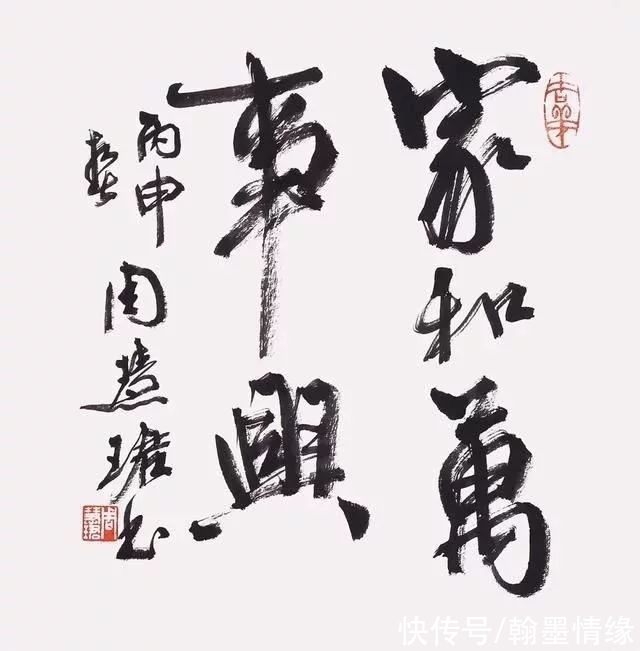 家和萬
事興
丙申
春
周慧珺书
周慧珺
快传号/翰墨情缘